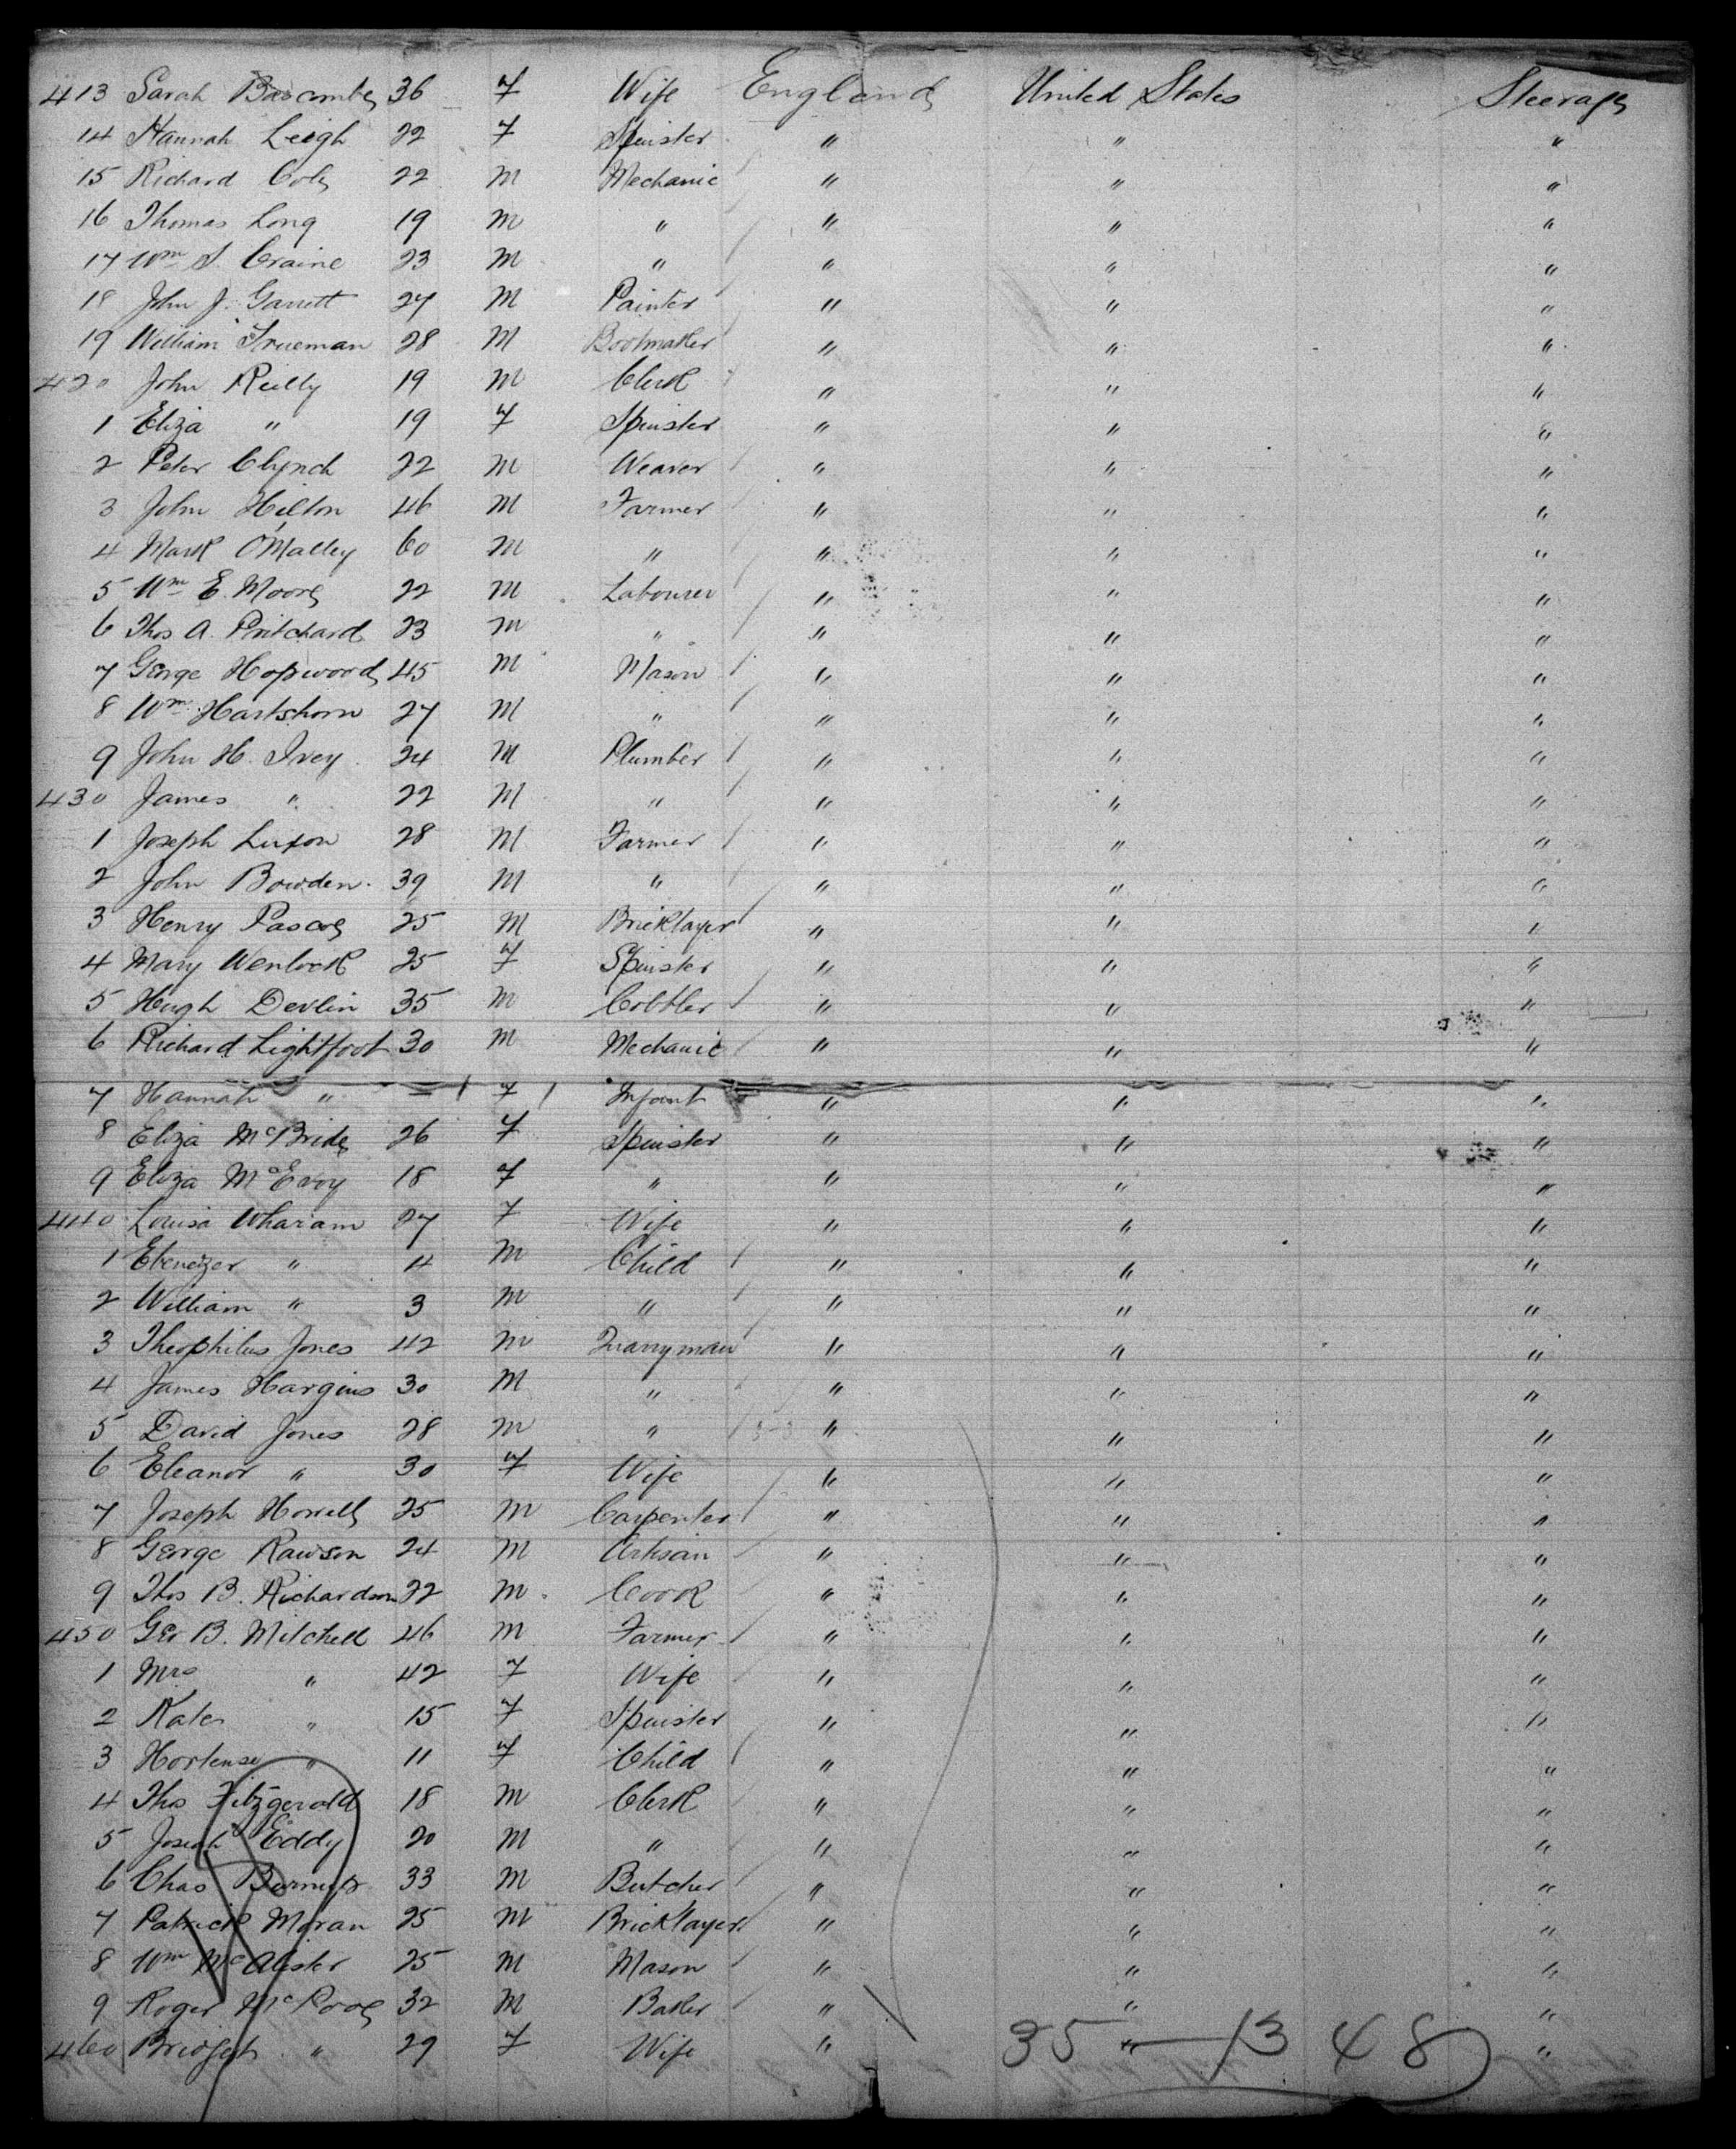 413 Sarah Bascombe 36 F Wife England United States Steerage
14 Hannah Leigh 22 F Spinster " " "
15 Richard Cole 22 M Mechanic " " "
16 Thomas Long 19 M " " " "
17 Wm S. Craine 23 M " " " "
18 John J. Garrett 27 M Painter " " "
19 William Trueman 28 M Bootmaker " " "
420 John Reilly 19 M Clerk " " "
1 Eliza " 19 F Spinster " " "
2 Peter Clynch 22 M Weaver " " "
3 John Hilton 46 M Farmer " " "
4 Mark O'Malley 60 M " " " "
5 Wm E. Moore 22 M Labourer " " "
6 Thos A. Pritchard 23 M " " " "
7 George Hopwood 45 M Mason " " "
8 Wm Hartshorn 27 M " " " "
9 John H. Ivey 24 M Plumber " " "
430 James " 22 M " " " "
1 Joseph Luxon 28 M Farmer " " "
2 John Bowden 39 M " " " "
3 Henry Pascoe 25 M Bricklayer " " "
4 Mary Wenlock 25 F Spinster " " "
5 Hugh Devlin 35 M Cobbler " " "
6 Richard Lightfoot 30 M Mechanic " " "
7 Hannah " F Infant " " "
8 Eliza McBride 26 F Spinster " " "
9 Eliza McEvoy 18 F " " " "
440 Louisa Wharam 27 F Wife " " "
1 Ebenezer " 4 M Child " " "
2 William " 3 M " " " "
3 Theophilus Jones 42 M Quarryman " " "
4 James Hargins 30 M " " " "
5 David Jones 28 M " " " "
6 Eleanor " 30 F Wife " " "
7 Joseph Howells 25 M Carpenter " " "
8 George Rawson 24 M Artisan " " "
9 Thos B. Richardson 22 M Cook " " "
450 Geo B. Mitchell 46 M Farmer " " "
1 Mrs " 42 F Wife " " "
2 Kate " 15 F Spinster " " "
3 Hortense " 11 F Child " " "
4 Thos Fitzgerald 18 M Clerk " " "
5 Josiah Eddy 20 M " " " "
6 Chas 33 M Butcher " " "
7 Patrick Moran 25 M Bricklayer " " "
8 Wm McAlister 25 M Mason " " "
9 Roger 32 M Baker " " "
460 Bridget " 29 F Wife " " "
35 — 13 48